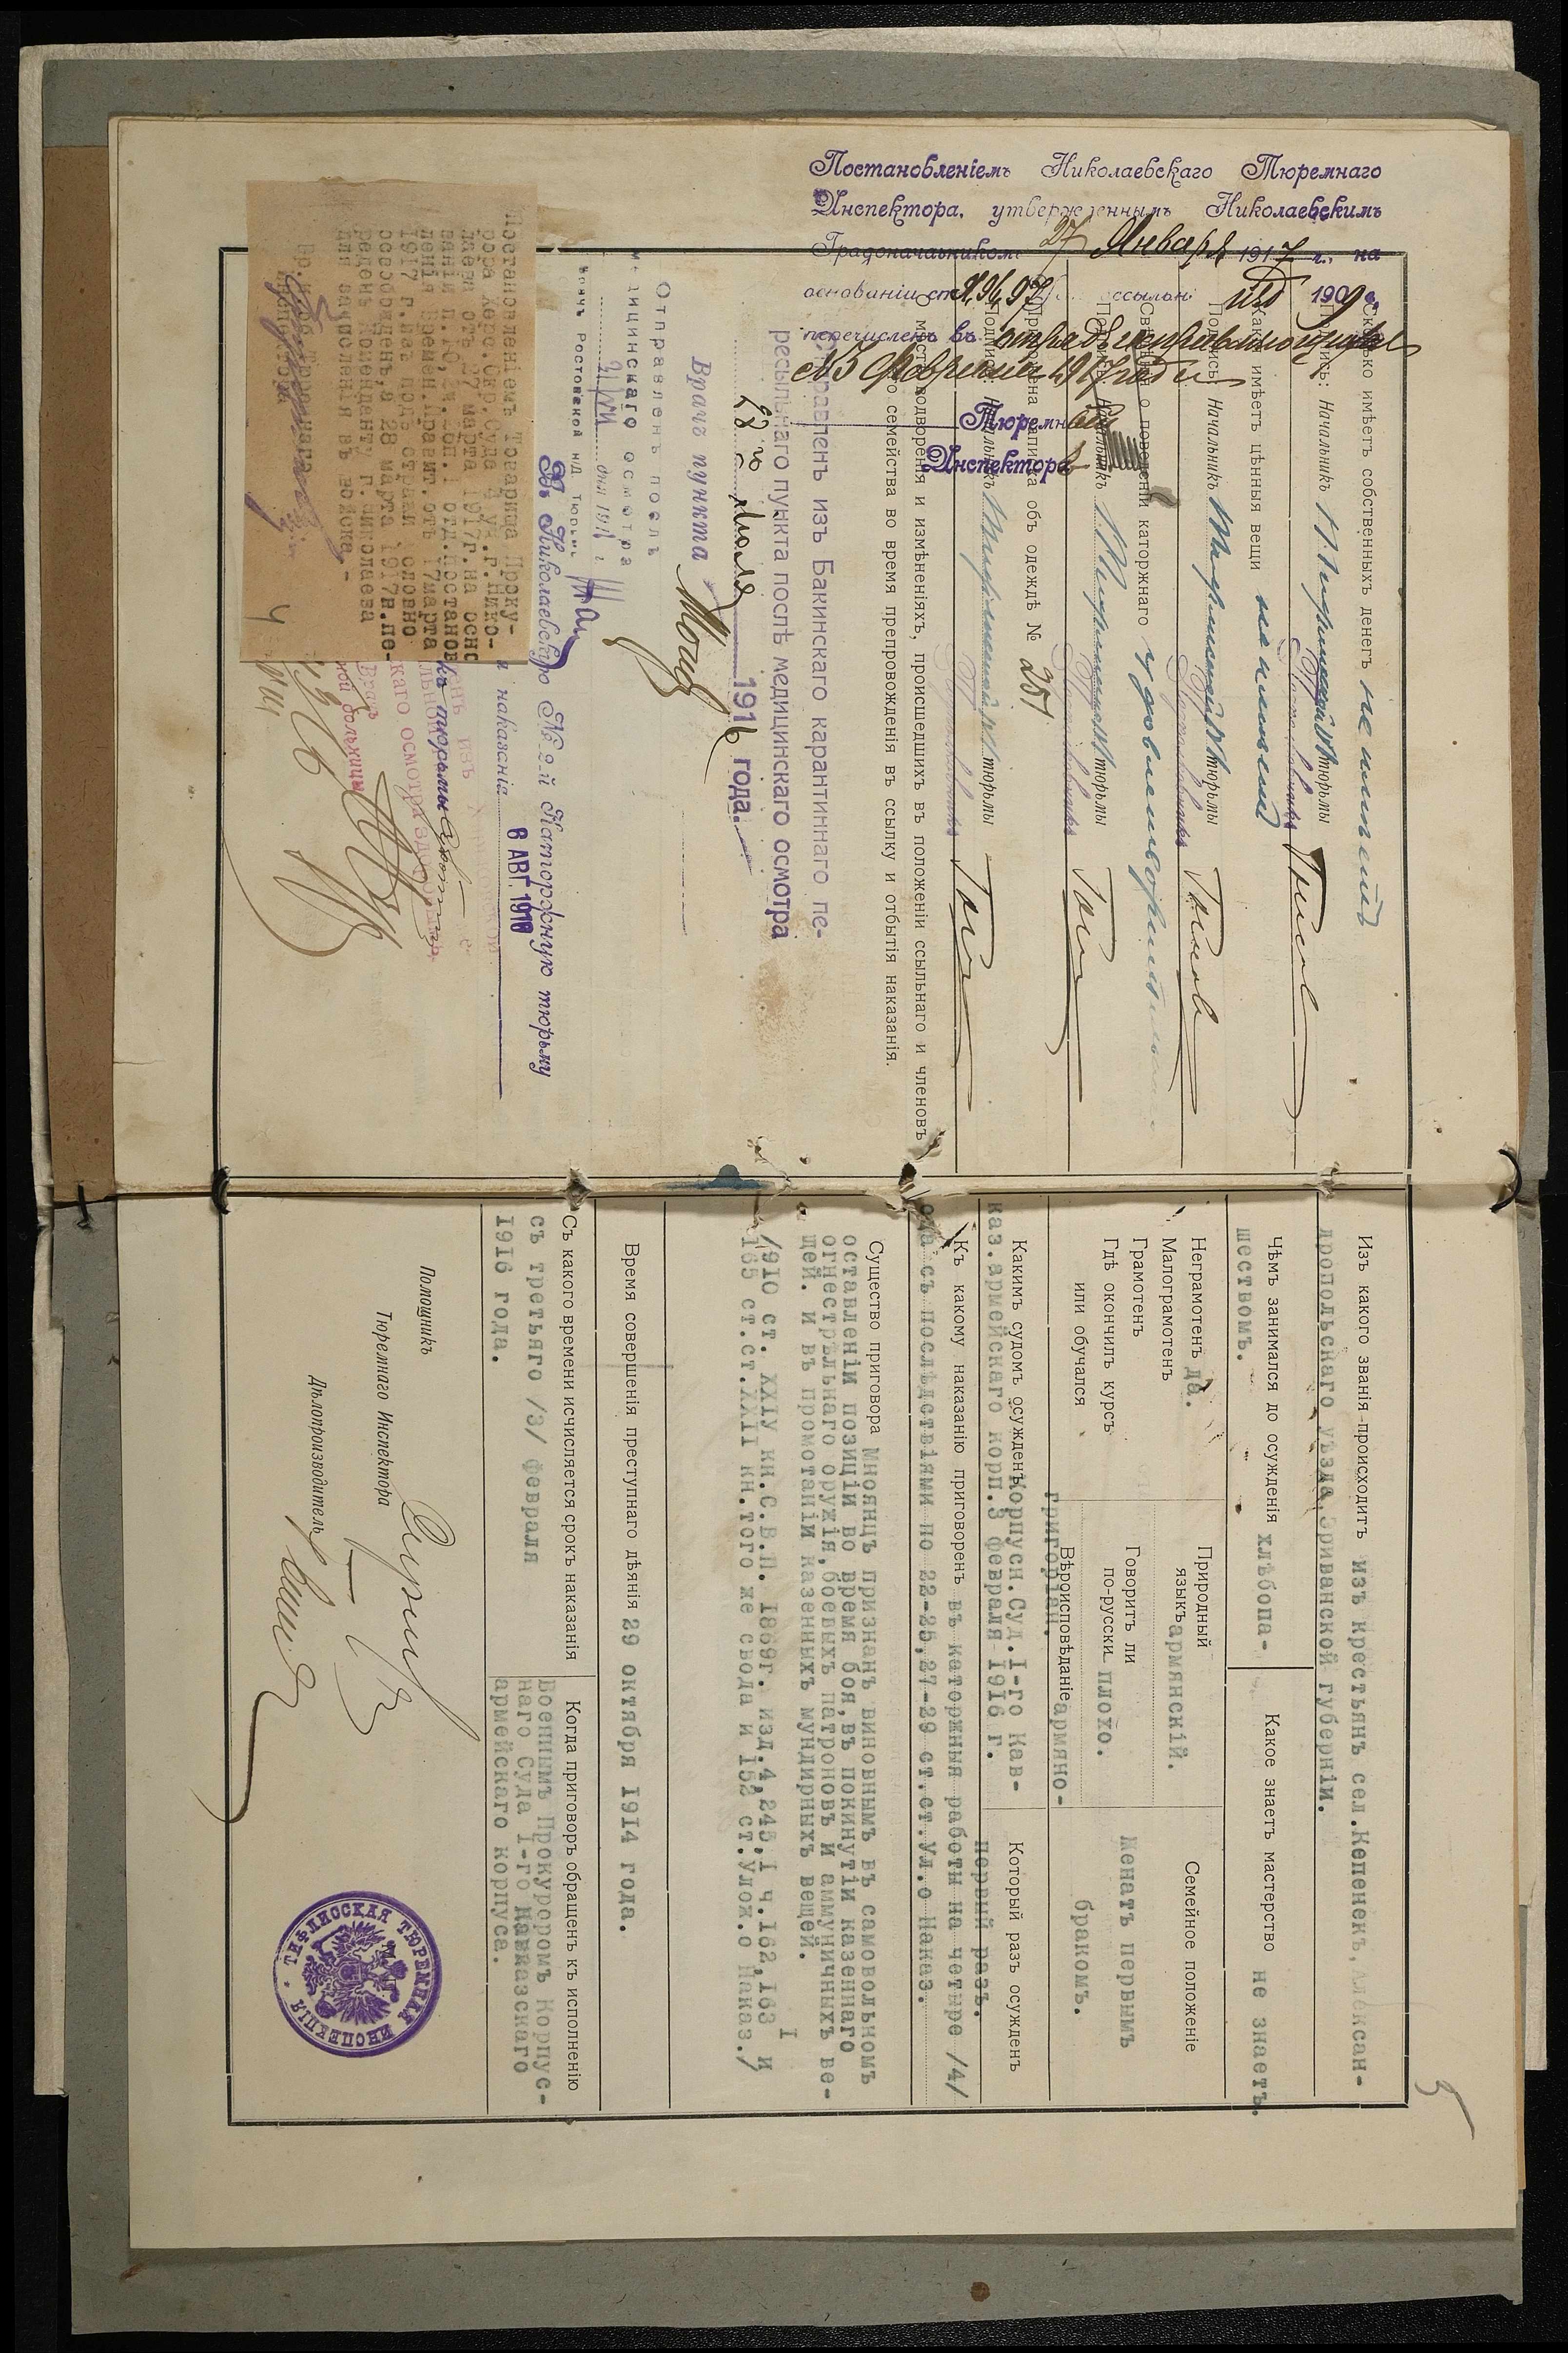 Изъ какого званія происходитъ изъ крестьянъ сел.Кепенекъ, Алексан-
дропольскаго уѣзда, Эриванской губерніи.
Чѣмъ занимался до осужденія хлѣбопа-
шествомъ.
Какое знаетъ мастерство не знаетъ.
Неграмотенъ да.
Малограмотенъ
Грамотенъ
Гдѣ окончилъ курсъ
или обучался
Природный
языкъ армянскій.
Говоритъ ли
по-русски плохо.
Вѣроисповѣданіе армяно-
григоріан.
Семейное положеніе
женатъ первымъ
бракомъ.
Какимъ судомъ осужденъ Корпусн.Суд.I-го Кав-
каз.армейскаго корп.3 февраля 1916 г.
Который разъ осужденъ
первый разъ.
Къ какому наказанію приговоренъ въ каторжныя работы на четыре /4/
года съ послѣдствіями по 22-25,27-29 ст.ст.Ул.о Наказ.
Существо приговора Мноянцъ признанъ виновнымъ въ самовольномъ
оставленіи позиціи во время боя,въ покинутіи казеннаго
огнестрѣльнаго оружія,боевыхъ патроновъ и аммуничныхъ ве-
щей. и въ промотаніи казенныхъ мундирныхъ вещей.
/910 ст. XXIV кн.С.В.П. 1869г. изд.4,245,I ч.162,163 и
165 ст.ст.XXII кн.того же свода и 152 ст.Улож.о Наказ./
Время совершенія преступнаго дѣянія 29 октября 1914 года.
Съ какого времени исчисляется срокъ наказанія
съ третьяго /3/ февраля
1916 года.
Когда приговоръ обращенъ къ исполненію
Военнымъ Прокуроромъ Корпус-
наго Суда I-го Кавказскаго
армейскаго корпуса.
Помощникъ
Тюремнаго Инспектора
Дѣлопроизводитель
ТИФЛИССКАЯ ТЮРЕМНАЯ ИНСПЕКЦІЯ
5
Постановленіемъ Николаевскаго Тюремнаго
Инспектора, утвержденнымъ Николаевскимъ
Градоначальникомъ 27 Января 1917 г., на
основаніи ст. 96, 97 ссыльн. изд 1909 г.
перечисленъ въ отрядъ исправляющихся
съ 3 Февраля 1917 года
Тюремный
Инспекторъ
Сколько имѣетъ собственныхъ денегъ не имѣетъ
Подпись: Начальникъ тюрьмы
Какія имѣетъ цѣнныя вещи не имѣетъ
Подпись: Начальникъ тюрьмы
Свѣдѣнія о поведеніи каторжнаго удовлетворительн
Подпись: Начальникъ тюрьмы
объ одеждѣ № 251
Подпись: Начальникъ тюрьмы
О мѣстѣ водворенія и измѣненіяхъ, происшедшихъ въ положеніи ссыльнаго и членовъ
его семейства во время препровожденія въ ссылку и отбытія наказанія.
Отправленъ изъ Бакинскаго карантиннаго пе-
ресыльнаго пункта послѣ медицинскаго осмотра
28 го Іюля 1916 года.
Врачъ пункта
Отправленъ послѣ
медицинскаго осмотра
31/VII дня 1916 г.
Врачъ Ростовской н/Д тюрьмы
Въ Николаевскую № 2-й Каторжную тюрьму
наказанія 6 АВГ. 1916
Постановленіемъ Товарища Проку-
рора Херс.Окр.Суда 2 уч.г.Нико-
лаева отъ 27 марта 1917г.на осно
ваніи п.10, отд.Постанов
ленія Времен.Правит.отъ 17марта
1917 г.изъ подъ стражи условно
освобожденъ,а 28 марта 1917г.пе-
реденъ Коменданту г.Николаева
для зачисленія въ войска.-
Вр. Тюремнаго
Инспектора